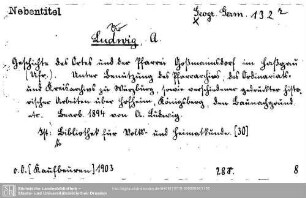 Nebentitel
Geogr. Germ. 132 r
Ludwig, A.
Geschichte des Ortes und der Pfarrei Goßmannsdorf im Haßgau
(Ufr.). Unter Benützung des Pfarrarchivs, des Ordinariats-
und Kreisarchivs zu Würzburg, sowie verschiedener gedruckter histo-
rischer Arbeiten über Hofheim, Königsberg, den Baunachgrund
etc. bearb. 1894 von A. Ludwig.
Bibliothek für Volks- und Heimatkunde. [30]
o.O. [Kaufbeuren] 1903
288.
8